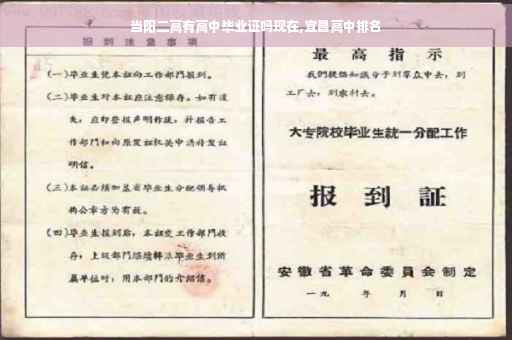 当阳二高有高中毕业证吗现在,宜昌高中排名
报到注意事项
(一)毕业生凭本证向工作部门报到。
(二)毕业生对本证应注意保存。如有遗
失,应即登报声明作废,并报告工
作部门和向原发证机关申请补发证
明信。
(三)本证必须加盖省毕业生分配领导机
构公章方为有效。
(四)毕业生报到后,本证交工作部门收
存;上级部门继续转派毕业生到所
属单位时,用本部门的介绍信。
最高指示
我们提倡知识分子到群众中去,到
工厂去,到农村去。
大专院校毕业生统一分配工作
报到证
安徽省革命委员会制定
一九 年 月 日